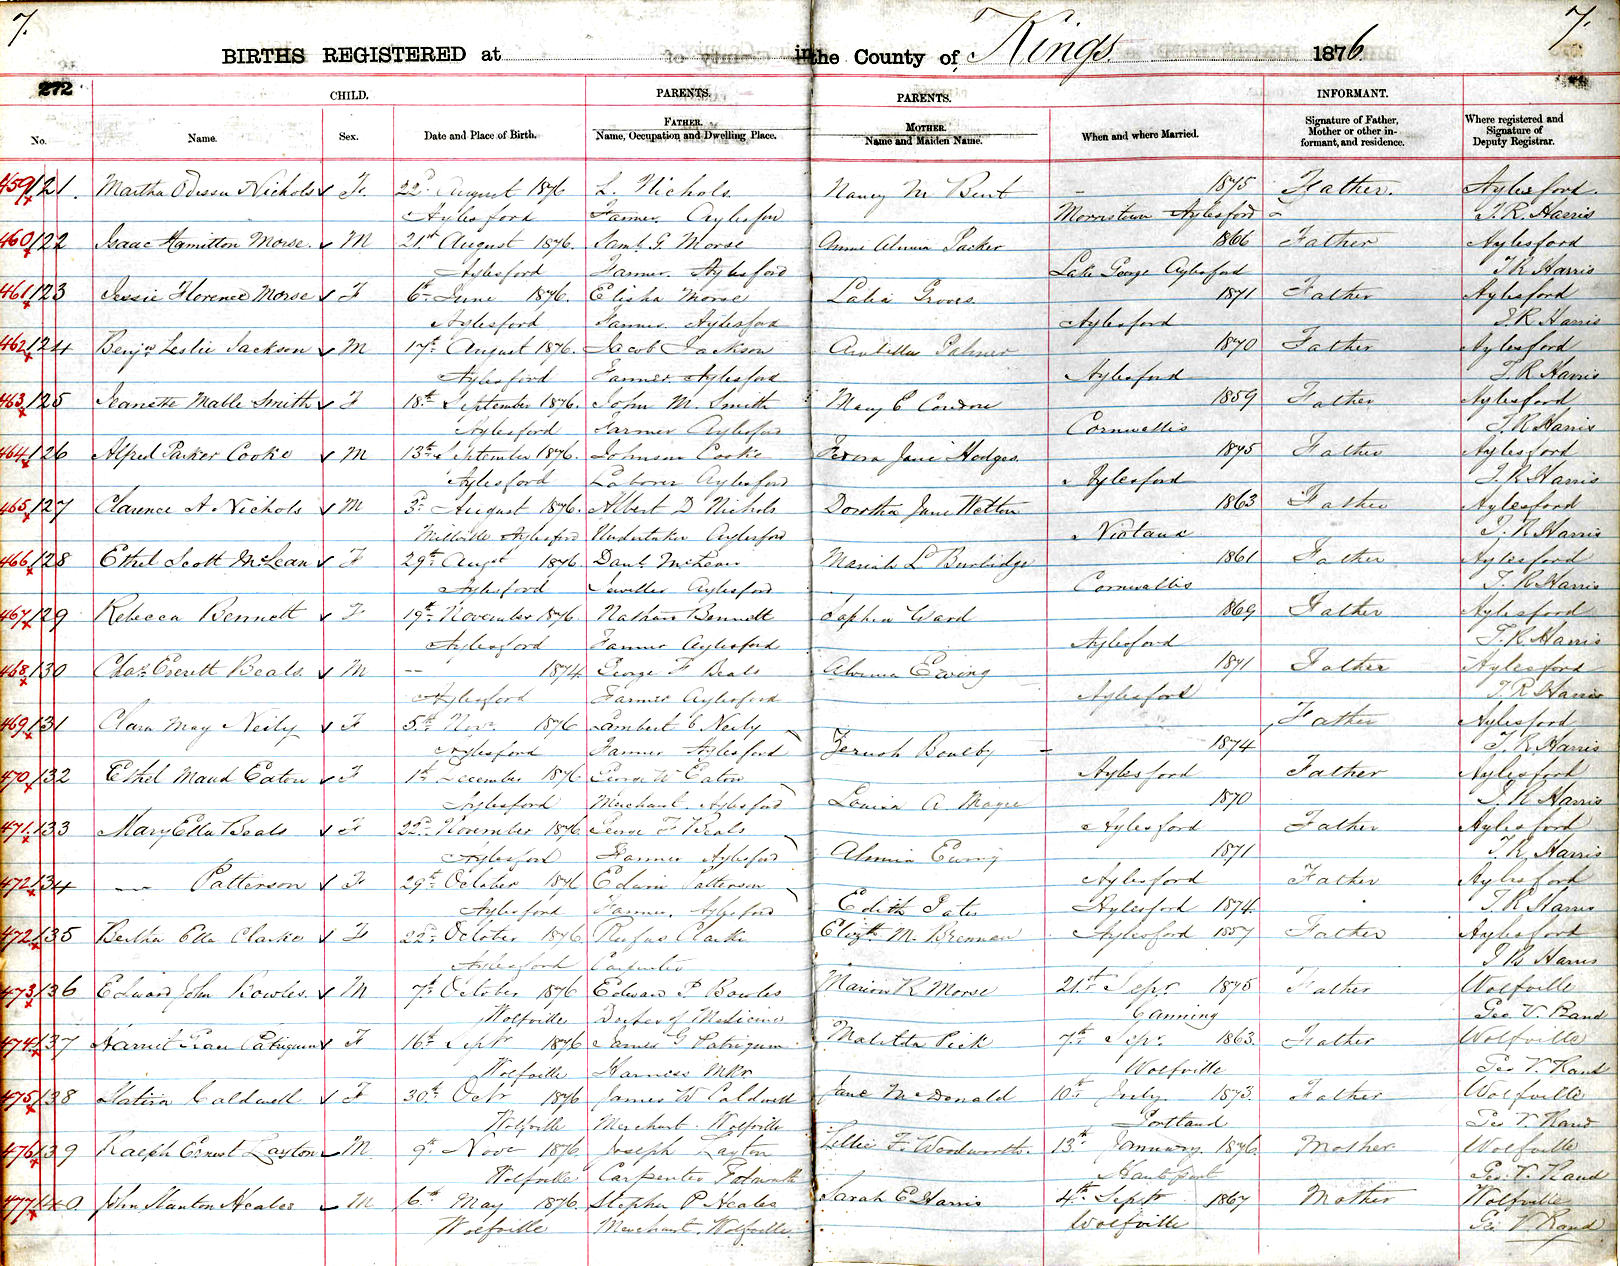 7. 7.
BIRTHS REGISTERED at in the County of Kings 1876.
272
CHILD. PARENTS. PARENTS. INFORMANT.
No. Name. Sex. Date and Place of Birth. FATHER. Name, Occupation and Dwelling Place. MOTHER. Name and Maiden Name. When and where Married. Signature of Father, Mother or other informant, and residence. Where registered and Signature of Deputy Registrar.
459 121. Martha Odessa Nichols F 22d August 1876 L. Nichols. Nancy M Bent 1875 Father. Aylesford.
Aylesford Farmer, Aylesford Morristown Aylesford T. R. Harris
460 122 Isaac Hamilton Morse. M 21st August 1876. Saml. G. Morse Packer 1866 Father Aylesford
Aylesford Farmer. Aylesford Lake George Aylesford T R Harris
461 123 Jessie Florence Morse F 6th June 1876. Elisha Morse Groves 1871 Father Aylesford
Aylesford Farmer. Aylesford Aylesford T. R Harris
462 124 Benjn Leslie Jackson M 17th August 1876. Jacob Jackson Palmer 1870 Father Aylesford
Aylesford Farmer. Aylesford Aylesford T. R Harris
463 125 Jeanette Mable Smith F 18th September 1876. John M. Smith Mary E 1859 Father Aylesford
Aylesford Farmer Aylesford Cornwallis T. R Harris
464 126 Alfred Parker Cooke M 13th September 1876. Johnson Cooke Jane Hodges. 1875 Father Aylesford
Aylesford Laborer Aylesford Aylesford T. R Harris
465 127 Clarence A Nichols M 3d August 1876. Albert D Nichols Dorotha Jane Welton 1863 Father Aylesford
Millville Aylesford Undertaker Aylesford Nictaux T. R Harris
466 128 Ethel Scott McLean F 29th Augst 1876 Danl McLean Mariah L Burbidge 1861 Father Aylesford
Aylesford Jeweller Aylesford Cornwallis T. R Harris
467 129 Rebecca Bennett F 19th November 1876. Nathan Bennett Ward 1869 Father Aylesford
Aylesford Farmer Aylesford Aylesford T. R Harris
468 130 Chas. Everett Beals. M -- 1874 George F Beals Ewing 1871 Father Aylesford
Aylesford Farmer Aylesford Aylesford T. R Harris
469 131 Clara May Neily F 5th Nov. 1876 Lambert C Neily Father Aylesford
Aylesford Farmer Aylesford Zerush 1874 T. R Harris
470 132 Ethel Maud Eaton F 1st December 1876 W Eaton Aylesford Father Aylesford
Aylesford Merchant. Aylesford Louisa A Magee 1870 T. R Harris
471 133 Mary Ella Beals F 22d November 1876 George F Beals Aylesford Father Aylesford
Aylesford Farmer Aylesford Almira Ewing 1871 T. R. Harris
472 134 Patterson F 29th October 1876 Edwin Patterson Aylesford Father Aylesford
Aylesford Farmer. Aylesford Edith Aylesford 1874. T. R Harris
472 135 Bertha Ella Clarke F 22d October 1876 Rufus Clarke Elizth. M. Brennan Aylesford 1857 Father Aylesford
Aylesford Carpenter T R Harris
473 136 Edward John Bowles. M 7th October 1876 Edward P. Bowles Marion R Morse 21st Sept. 1875 Father Wolfville
Wolfville Doctor of Medicine Canning Geo V. Rand
474 137 Harriet F 16th Septr 1876 James G Matilda Pick 7th Sepr. 1863. Father Wolfville
Wolfville Harness Mkr Wolfville Geo V. Rand
475 138 Caldwell F 30th Octr 1876 James W Caldwell Jane McDonald 10th July. 1873. Father Wolfville
Wolfville Merchant. Wolfville Portland Geo V. Rand
476 139 Ralph Ernest Layton M 9th Novr 1876 Joseph Layton Lellie F. Woodworth. 13th January 1876. Mother Wolfville
Wolfville Carpenter Falmouth Hantsport Geo. V. Rand
477 140 John Stanton Heales M 6th May 1876. Stephen P Heales Sarah E Harris 4th Septr 1867 Mother Wolfville
Wolfville Merchant. Wolfville. Wolfville Geo V. Rand